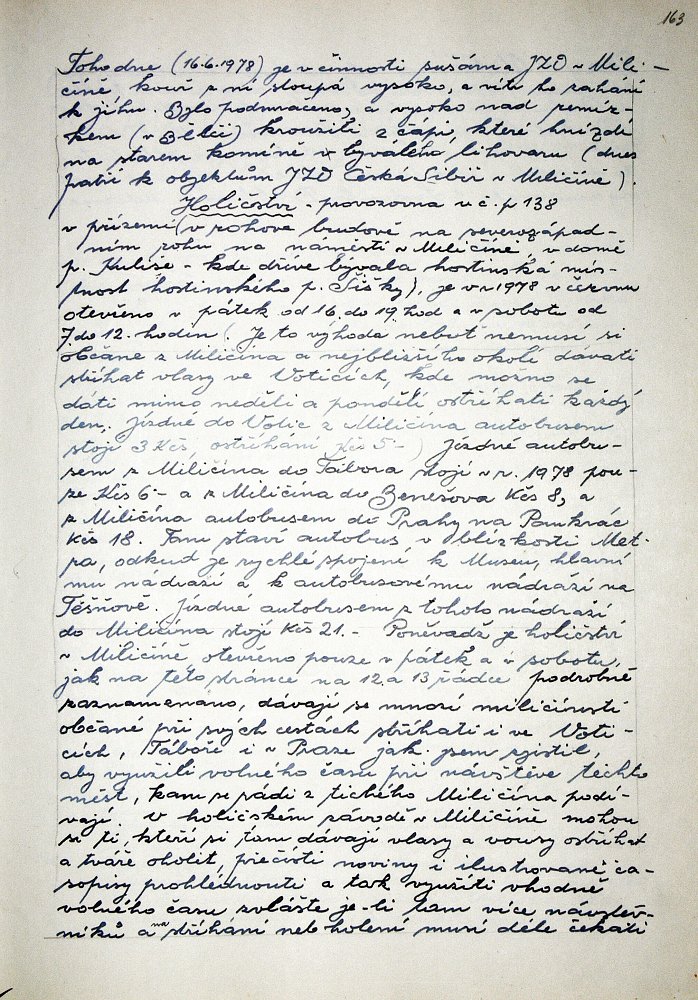 163
Toho dne (16.6.1978) je v činnosti sušárna JZD v Mili-
číně, kouř z ní stoupá vysoko, a vítr ho zahání
k jihu. Bylo podmračeno, a vysoko nad remíz-
kem (v Bělči) kroužili 2 čápi, které hnízdí
na starém komíně v bývalého lihovaru (dnes
patří k objektům JZD Česká Sibiř v Miličíně).
Holičství - provozovna v č. p 138
v přízemí (v rohové budově na severozápad-
ním rohu na náměstí v Miličíně, v domě
p. Kuliše - kde dříve bývala hostinská mís-
tnost hostinského p. Šišky), je v r 1978 v červnu
otevřeno v pátek od 16. do 19 hod a v sobotu od
7 do 12. hodin (Je to výhoda neboť nemusí si
občané z Miličína a nejbližšího okolí dávati
stříhat vlasy ve Voticích, kde možno se
dáti mimo neděli a pondělí ostříhati každý
den. Jízdné do Votic z Miličína autobusem
stojí 3 Kčs, ostříhání Kčs 5.-) Jízdné autobu-
sem z Miličína do Tábora stojí v r. 1978 pou-
ze Kčs 6.- a z Miličína do Benešova Kčs 8, a
z Miličína autobusem do Prahy na Pankrác
Kčs 18. Tam staví autobus v blízkosti Met-
ra, odkud je rychlé spojení k Museu, hlavní
mu nádraží a k autobusovému nádraží na
Těšnově. Jízdné autobusem z tohoto nádraží
do Miličína stojí Kčs 21.- Poněvadž je holičství
v Miličíně otevřeno pouze v pátek a v sobotu,
jak na této stránce na 12. a 13 řádce podrobně
zaznamenáno, dávají se mnozí miličínstí
občané při svých cestách stříhati i ve Voti-
cích, Táboře i v Praze jak jsem zjistil,
aby využili volného času při návštěvě těchto
měst, kam se rádi z tichého Miličína podí-
vají. V holičském závodě v Miličíně mohou
si ti, kteří si tam dávají vlasy a vousy ostříhat
a tváře oholit, přečísti noviny i ilustrované ča-
sopisy prohlédnouti a tak využíti vhodně
volného času zvláště je-li tam více návštěv-
níků a na stříhání neb holení musí déle čekati